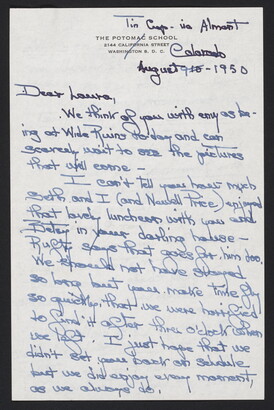 Tin Cup - via Almont
THE POTOMAC SCHOOL
2144 CALIFORNIA STREET
WASHINGTON 8, D. C.
Colorado
August 1950
Dear Laura,
We think of you with envy as be-
ing at Wide Ruins today and can
scarcely wait to see the pictures
that will come -
I can't tell you how much
Seth and I (and Navill Tree) enjoyed
that lovely luncheon with you and
in your darling house -
says that goes for him too.
We should not have stayed
so long but you make time fly
so quickly that we were horrified
to find it after three o'clock when
we left. I just hope that we
didn't set you back on schedule
but we did enjoy every moment,
as we always do.